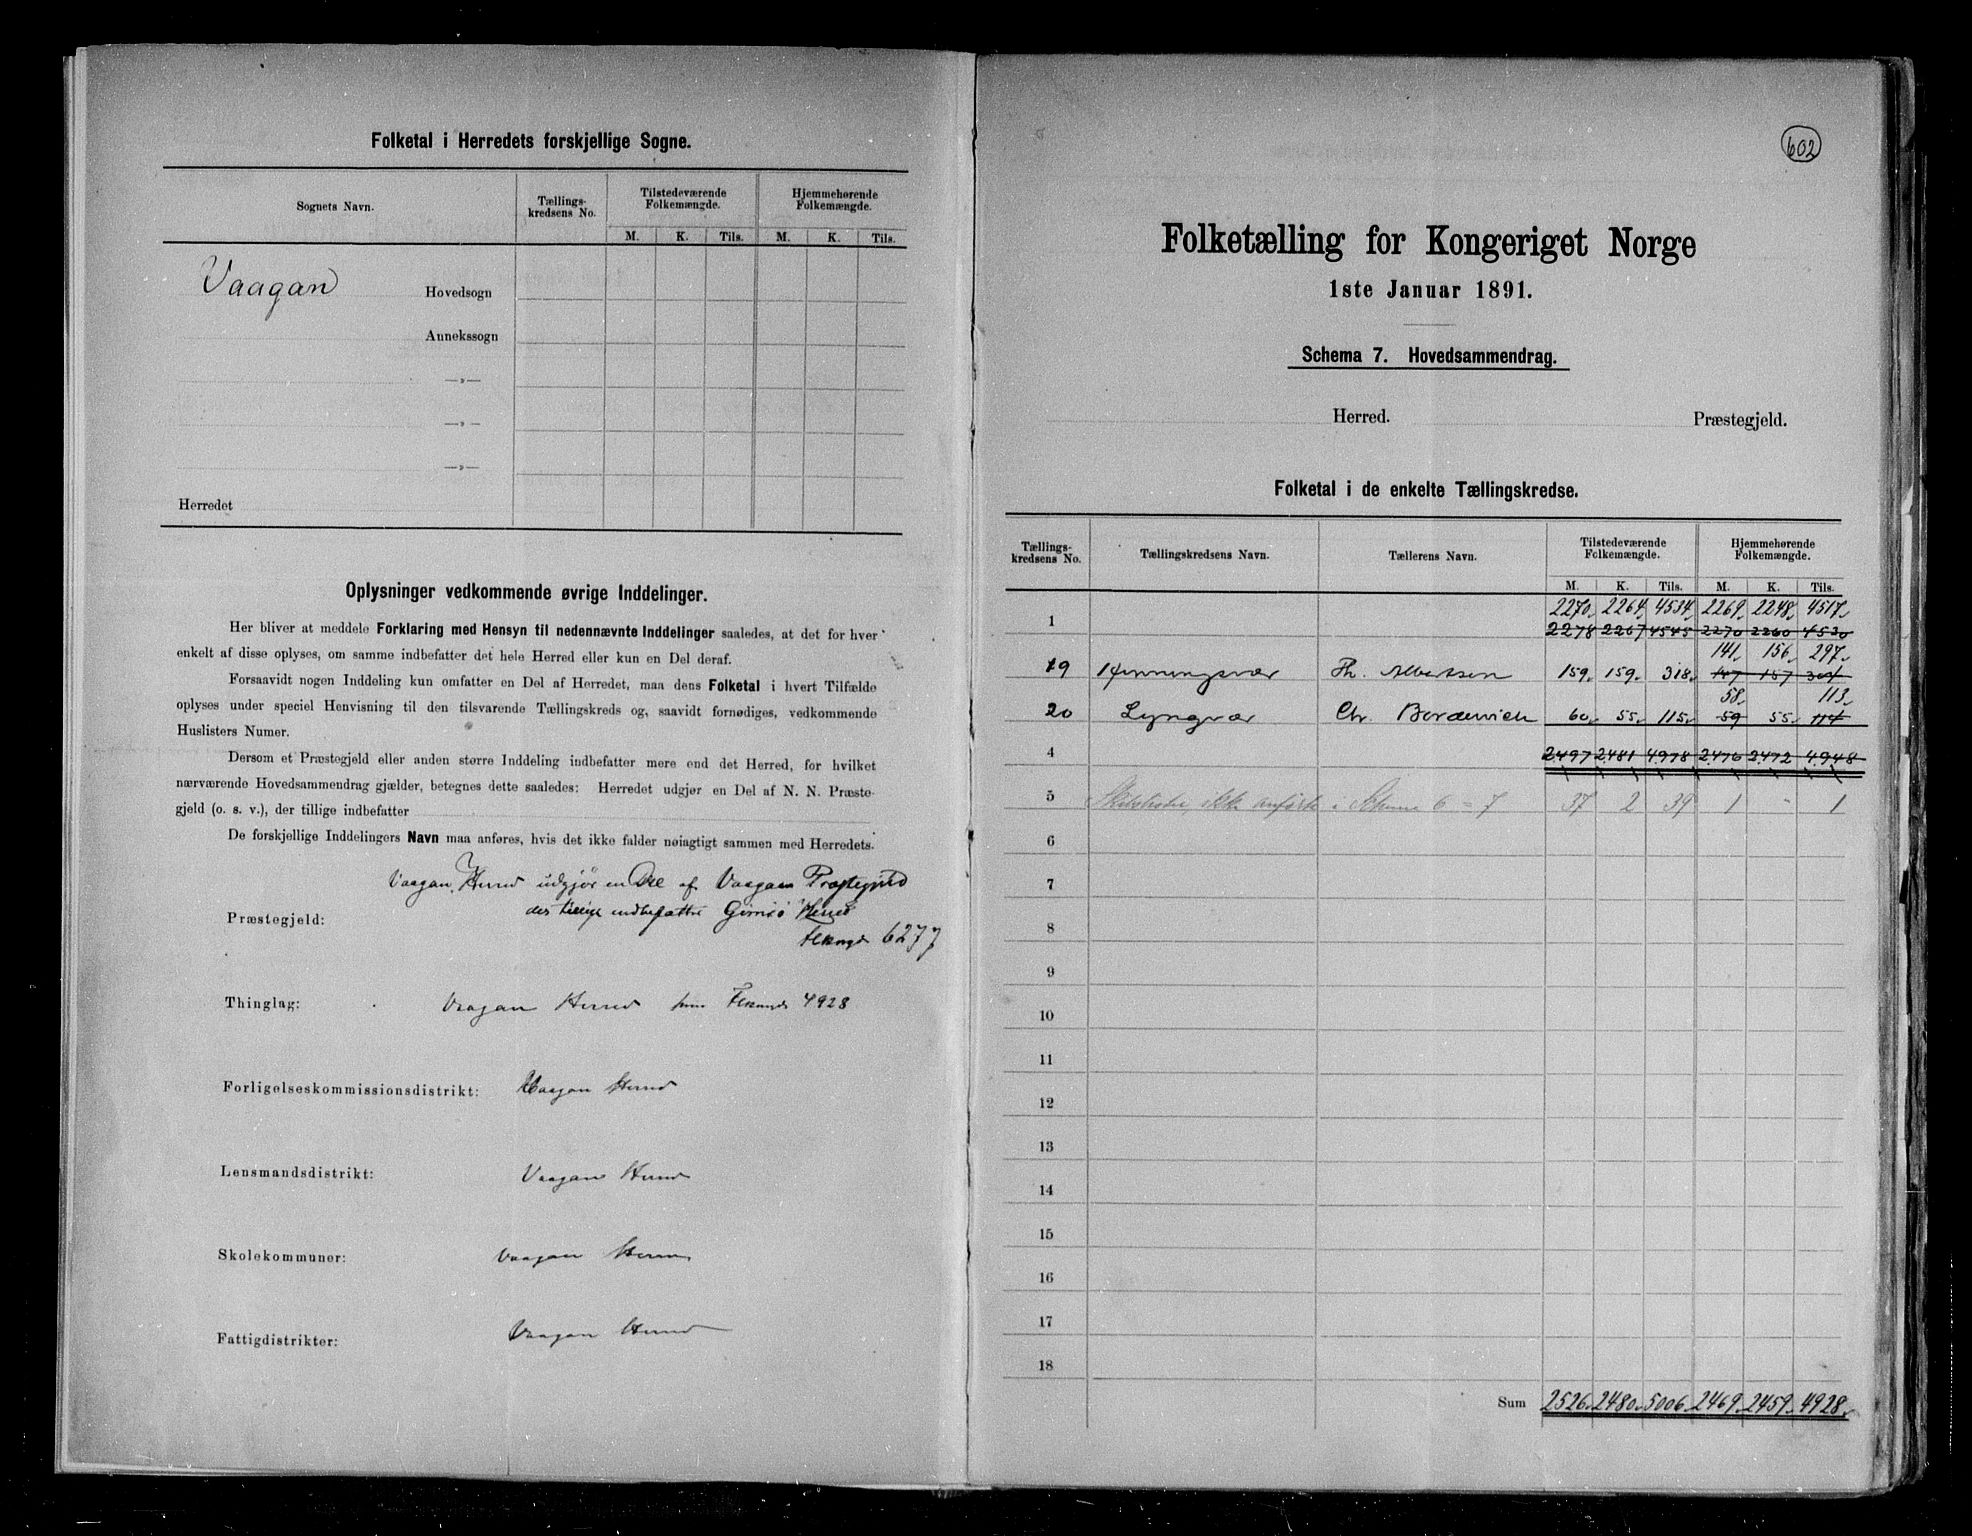 Folketal i Herredets forskjellige Sogne.
Sognets Navn.
Tællings-
kredsens No.
Tilstedeværende
Folkemængde.
Hjemmehørende
Folkemængde.
M. K. Tils. M. K. Tils.
Vaagan Hovedsogn
Annekssogn
—„—
—„—
—„—
Herredet
Oplysninger vedkommende øvrige Inddelinger.
Her bliver at meddele Forklaring med Hensyn til nedennævnte Inddelinger saaledes, at det for hver
enkelt af disse oplyses, om samme indbefatter det hele Herred eller kun en Del deraf.
Forsaavidt nogen Inddeling kun omfatter en Del af Herredet, maa dens Folketal i hvert Tilfælde
oplyses under speciel Henvisning til den tilsvarende Tællingskreds og, saavidt fornødiges, vedkommende
Huslisters Numer.
Dersom et Præstegjeld eller anden større Inddeling indbefatter mere end det Herred, for hvilket
nærværende Hovedsammendrag gjælder, betegnes dette saaledes: Herredet udgjør en Del af N. N. Præste-
gjeld (o. s. v.), der tillige indbefatter
De forskjellige Inddelingers Navn maa anføres, hvis det ikke falder nøiagtigt sammen med Herredets.
Vaagan Herred udgjør en Del af Vaagan Præstegjeld
der tillige indbefatter Gimsø Herred
Præstegjeld:
6277
Thinglag: Vaagan Herred 4928
Forligelseskommissionsdistrikt: Vaagan Herred
Lensmandsdistrikt: Vaagan Herred
Skolekommuner: Vaagan Herred
Fattigdistrikter: Vaagan Herred
602
Folketælling for Kongeriget Norge
1ste Januar 1891.
Schema 7. Hovedsammendrag.
Herred. Præstegjeld.
Folketal i de enkelte Tællingskredse.
Tællings-
kredsens No.
Tællingskredsens Navn.
Tællerens Navn.
Tilstedeværende
Folkemængde.
Hjemmehørende
Folkemængde.
M. K. Tils. M. K. Tils.
2270 2264 4534 2269 2248 4517
1 2278 2267 4545 2270 2260 4530
141 156 297
19 Henningsvær Th. Albertsen 159 159 318 147 157 304
58 113
20 Lyngvær Chr. 60 55 115 59 55 114
4 2497 2481 4978 2476 2472 4948
5 ikke anført i Schema 6 = 7 37 2 39 1 - 1
6
7
8
9
10
11
12
13
14
15
16
17
18
Sum 2526 2480 5006 2469 2459 4928